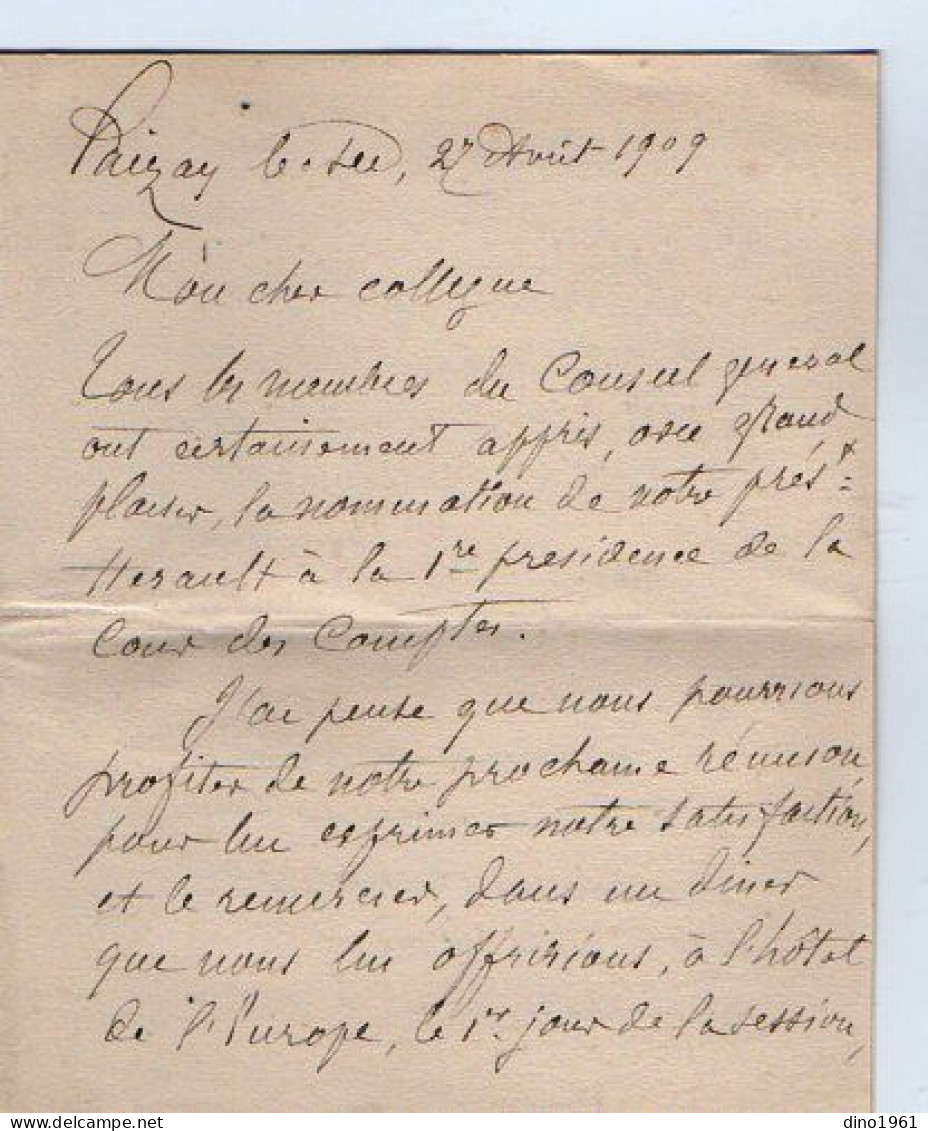 Paizay le-Sec, 27 Août 1909
Mon cher collegue
Tous les membres du Conseil general
ont certainement appris, avec grand
plaisir, la nomination de notre prést
Herault à la 1re presidence de la
Cour des Comptes.
J'ai pensé que nous pourrions
profiter de notre prochaine réunion,
pour lui exprimer notre satisfaction,
et le remercier, dans un diner
que nous lui offririons, à l'hôtel
de l'Europe, le 1er jour de la session,
dino1961